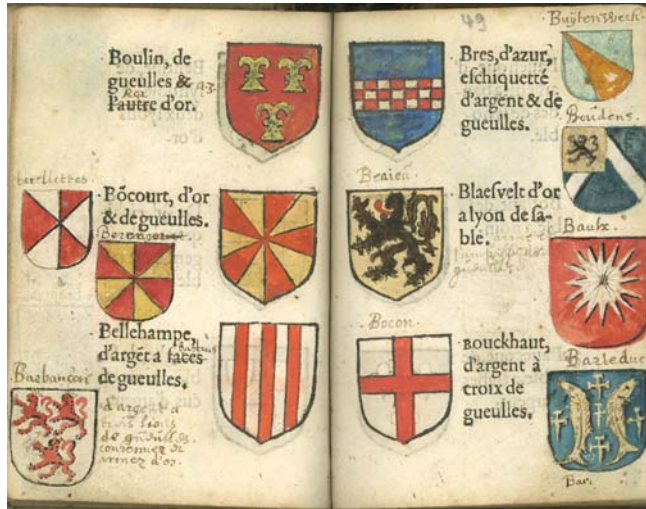 Boulin, de
gueulles &
l'autre d'or.
terellettes
Bōcourt, d'or
& de gueulles.
Bellehampe,
d'argēt a faces
de gueulles.
Barbançon
d'argent a
trois lions
de gueulles
couronnez &
armez d'or.
49
Bres, d'azur,
eschiquetté
d'argent & de
gueulles.
Boudens.
Beaieu.
Blaesvelt d'or
a lyon de sa-
ble.
Baulx.
Bocon.
Bouckhaut,
d'argent à
croix de
gueulles.
Barleduc
Bar.